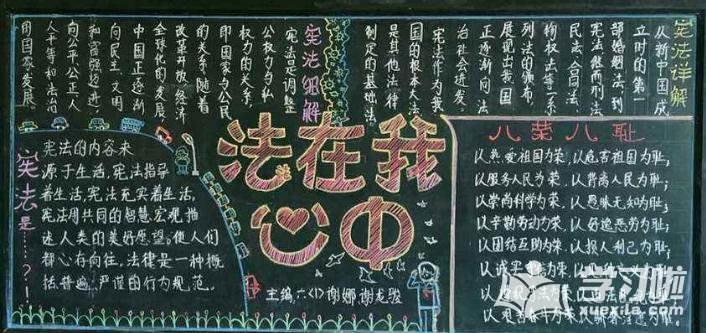 宪法详解
从新中国成
立时的第一
部婚姻法到
宪法继而刑法
民法、合同法、
物权法等一系
列法的颁布，
展现出我国
正逐渐向法
治社会进发。
宪法作为我
国的根本大法
是其他法律
制定的基础法。
宪法细解
宪法是调整
公权力与私
权力的关系，
即国家与公民
的关系。随着
改革开放，经济
全球化的发展，
中国正逐渐
向民主、文明
和富强迈进，
向公平公正人
人平等和法治
国家发展。
法在我
心中
主编：六(1)谢娜 谢龙骏
宪法是……?!
宪法的内容来
源于生活，宪法指导
着生活，宪法充实着生活，
宪法用共同的智慧宏观描
述人类的美好愿望，使人们
都心有向往，法律是一种概
括、普遍、严谨的行为规范。
八荣八耻
以热爱祖国为荣，以危害祖国为耻；
以服务人民为荣，以背离人民为耻；
以崇尚科学为荣，以愚昧无知为耻；
以辛勤劳动为荣，以好逸恶劳为耻；
以团结互助为荣，以损人利己为耻；
以诚实
以
以艰苦奋斗为荣
学习啦
xuexila.com